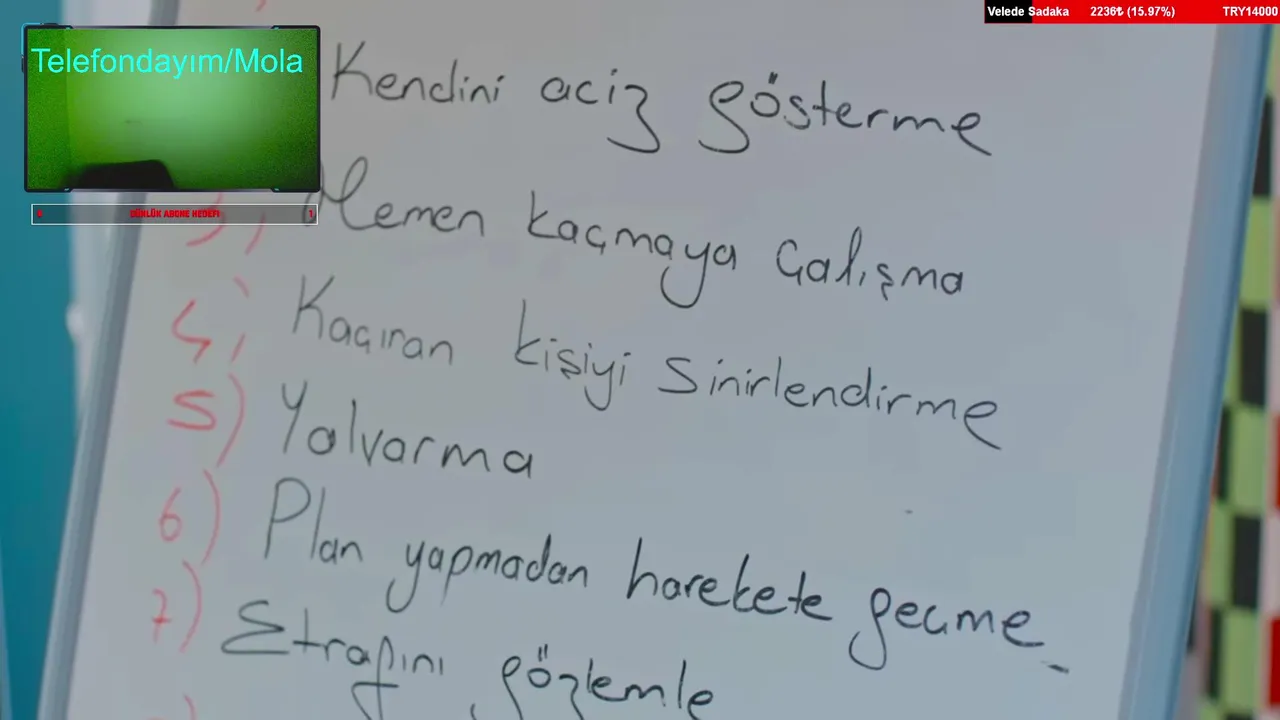 Velede Sadaka 2236₺ (15.97%) TRY14000
Telefondayım/Mola
0 GÜNLÜK ABONE HEDEFİ 1
Kendini aciz gösterme
3) Hemen kaçmaya çalışma
4) Kaçıran kişiyi sinirlendirme
5) Yalvarma
6) Plan yapmadan harekete geçme
7) Etrafını gözlemle